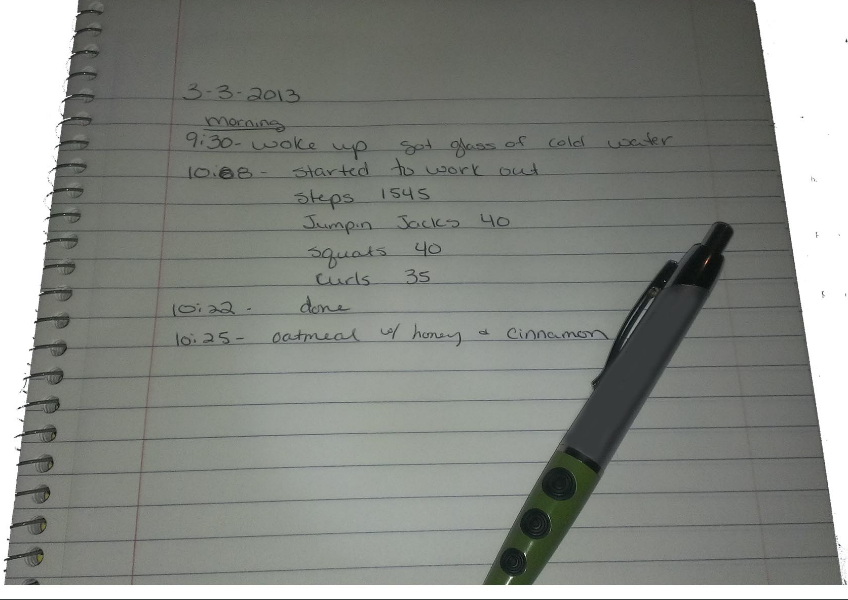 3-3-2013
morning
9:30- woke up got glass of cold water
10:08- started to work out
steps 1545
Jumpin Jacks 40
squats 40
curls 35
10:22- done
10:25- oatmeal w/ honey & cinnamon